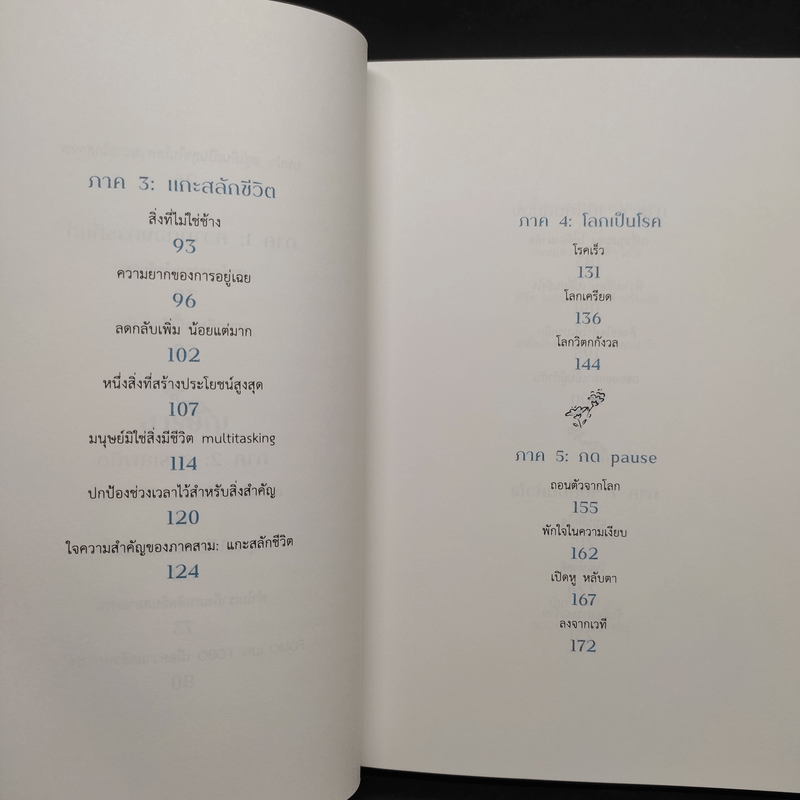 ภาค 3: แกะสลักชีวิต
สิ่งที่ไม่ใช่ช้าง
93
ความยากของการอยู่เฉย
96
ลดกลับเพิ่ม น้อยแต่มาก
102
หนึ่งสิ่งที่สร้างประโยชน์สูงสุด
107
มนุษย์มิใช่สิ่งมีชีวิต multitasking
114
ปกป้องช่วงเวลาไว้สำหรับสิ่งสำคัญ
120
ใจความสำคัญของภาคสาม: แกะสลักชีวิต
124
ภาค 4: โลกเป็นโรค
โรคเร็ว
131
โลกเครียด
136
โลกวิตกกังวล
144
ภาค 5: กด pause
ถอนตัวจากโลก
155
พักใจในความเงียบ
162
เปิดหู หลับตา
167
ลงจากเวที
172